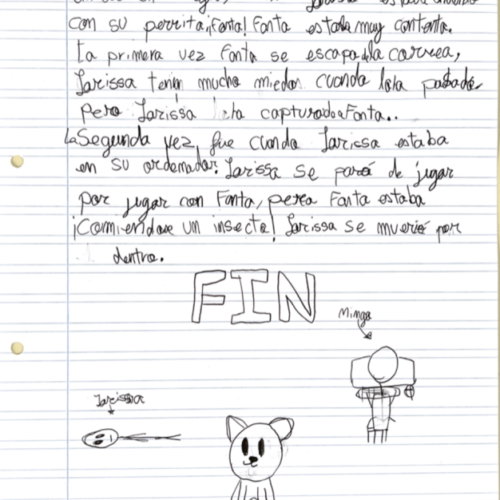 con su perrita, ¡Fanta! Fanta estaba muy contenta.
La primera vez Fanta se escapó la correa,
Larissa tenía mucho miedo cuando
pero Larissa capturado a Fanta..
La Segunda vez, fue cuando Larissa estaba
en su ordenador. Larissa se paró de jugar
por jugar con Fanta, pero Fanta estaba
¡Comiendose un insecto! Larissa se murió por
dentro.
FIN
Mingo
Larissa